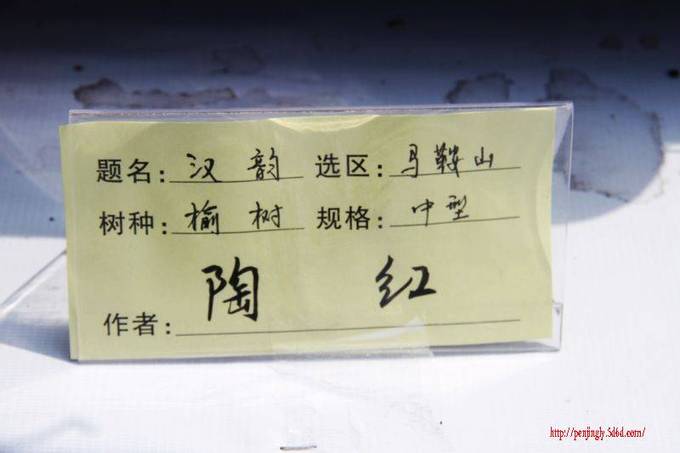 题名：汉韵 选区：马鞍山
树种：榆树 规格：中型
作者：陶红
http://penjingly.5d6d.com/